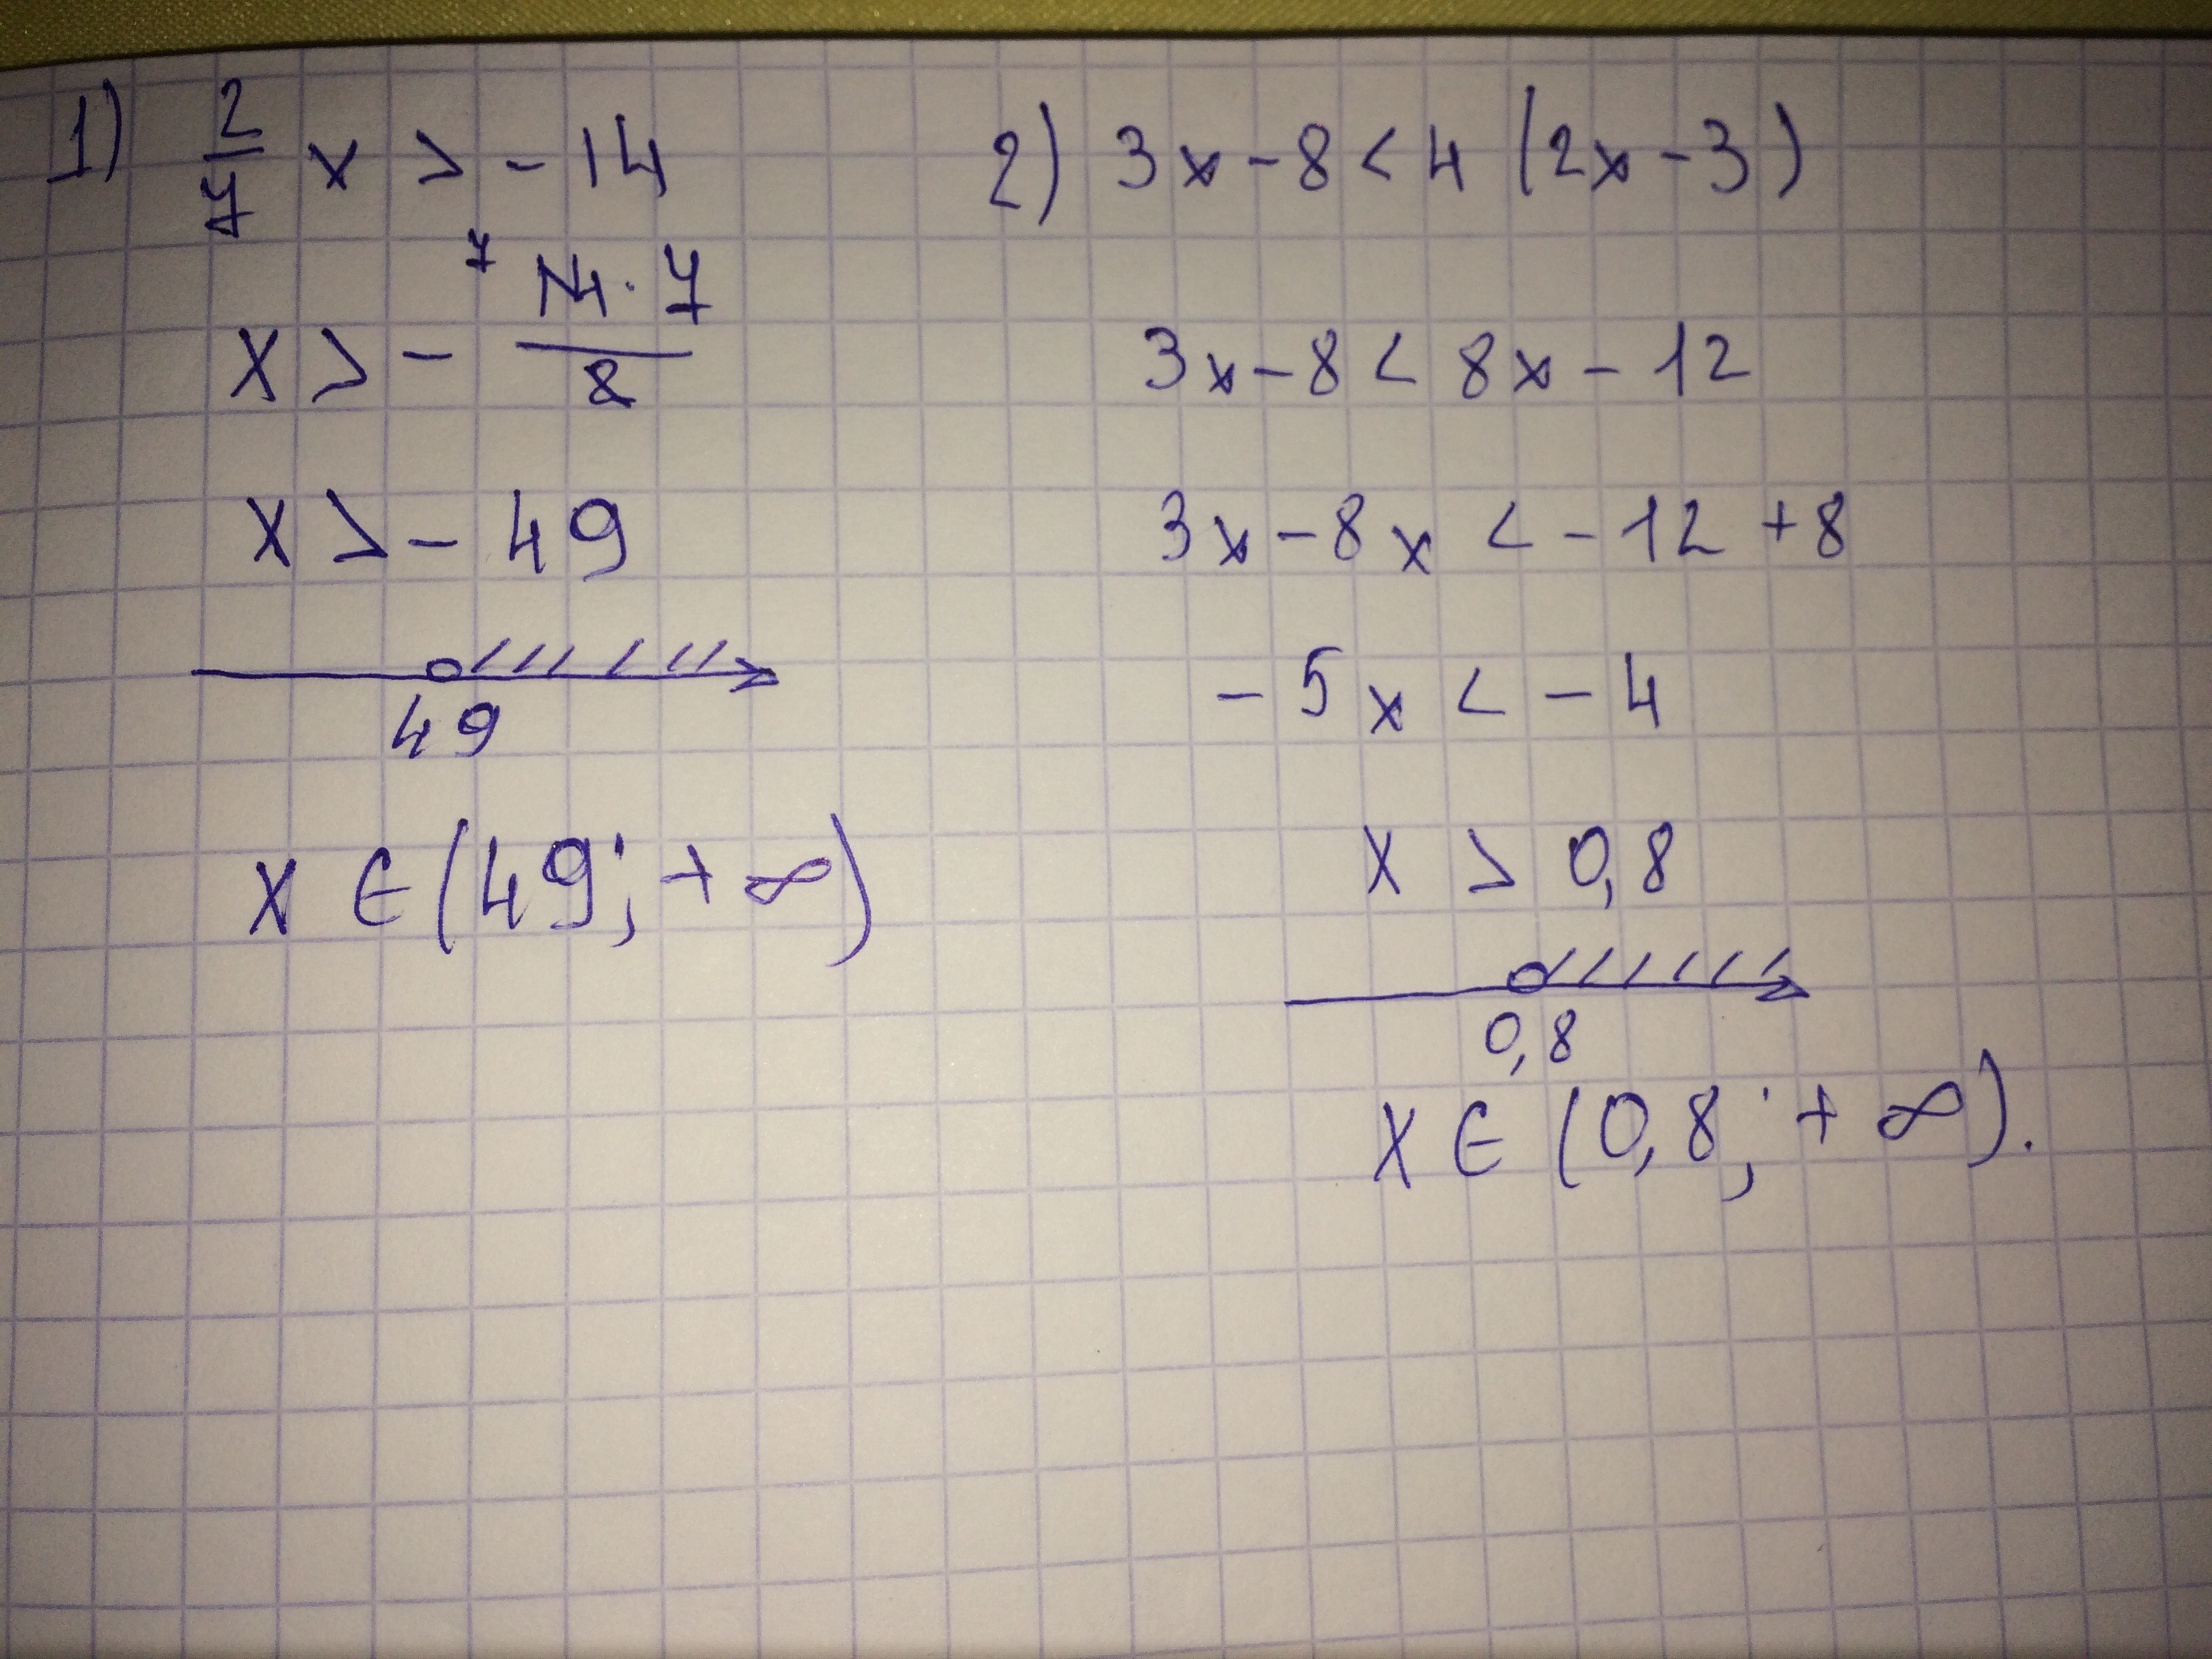 1) 2/7 x > -14
x > - 7 14·7/2
x > - 49
49
x ∈ (49; + ∞)
2) 3x - 8 < 4 (2x - 3)
3x - 8 < 8x - 12
3x - 8x < - 12 + 8
- 5x < - 4
x > 0,8
0,8
x ∈ (0,8; + ∞).